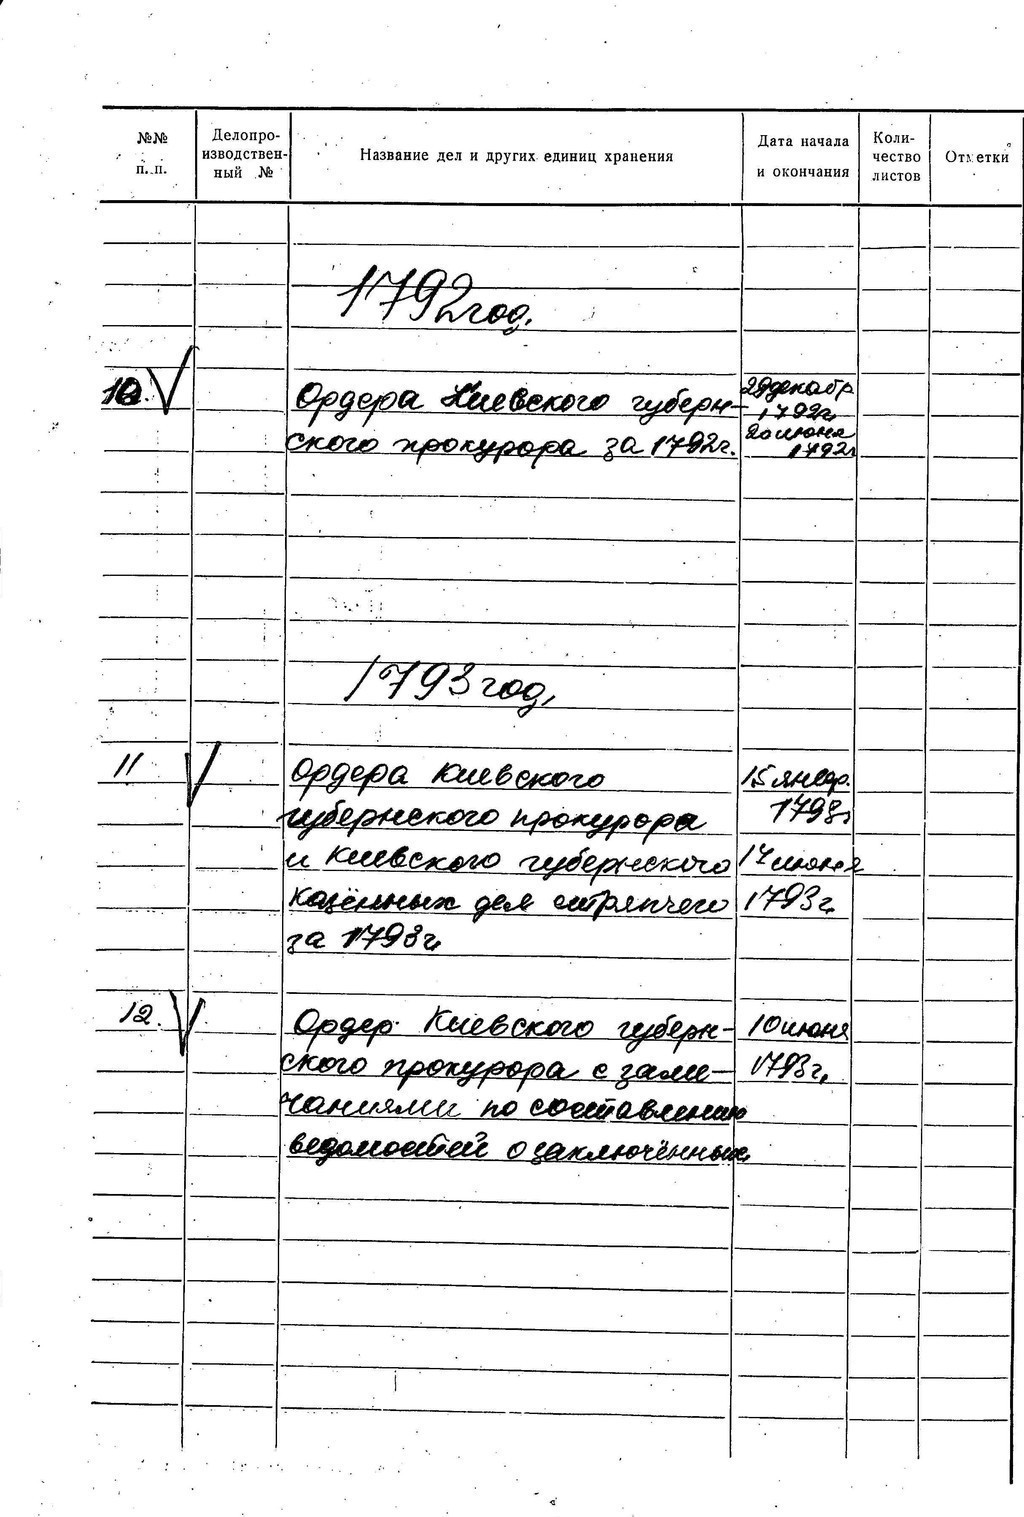 №№ п. п.
Делопро-
изводствен-
ный №
Название дел и других единиц хранения
Дата начала
и окончания
Коли-
чество
листов
Отметки
1792 год.
10.
Ордера Киевского губерн-
ского прокурора за 1792 г.
29 декабр
1792 г.
20 июня
1792 г
1793 год,
11
Ордера Киевского
губернского прокурора
и Киевского губернского
казённых дел стряпчего
за 1793 г.
15 январ.
1793 г.
17 июня
1793 г.
12.
Ордер Киевского губерн-
ского прокурора с заме-
чаниями по составлению
ведомостей о заключённых
10 июня
1793 г.